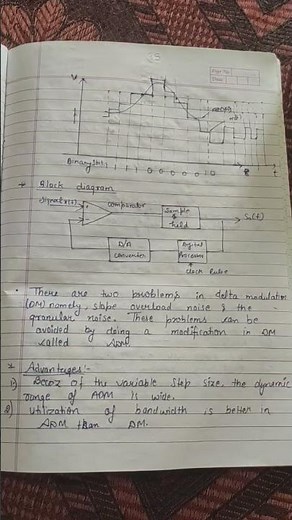 Page No.
Date
V
t
Binary
1 1 1 1 0 0 0 0 0 1 0
* Block diagram
signal x(t)
comparator
Sample
&
hold
So(t)
D/A
converter
Digital
Processor
clock Pulse
• There are two problems in delta modulation
(DM) namely, slope overload noise & the
granular noise. These problems can be
avoided by doing a modification in DM
called ADM
* Advantages :-
1) Becoz of the variable step size, the dynamic
range of ADM is wide.
2) Utilization of bandwidth is better in
ADM than DM.